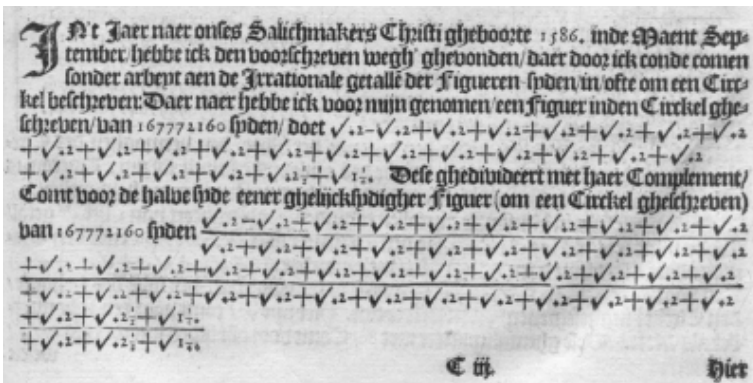 IN't Jaer naer onses Salichmakers Christi gheboorte 1586. inde Maent Sep-
tember/hebbe ick den voorschreven wegh ghevonden/daer door ick conde comen
sonder arbeyt aen de Irrationale getallē der Figueren syden/in/ofte om een Circ-
kel beschreven: Daer naer hebbe ick voor mijn genomen/een Figuer inden Circkel ghe-
schreven/van 167772160 syden/ doet √.2−√.2+√.2+√.2+√.2+√.2+√.2+√.2
+√.2+√.2+√.2+√.2+√.2+√.2+√.2+√.2+√.2+√.2+√.2+√.2+√.2
+√.2+√.2+√.2+√.2+√.2+√.2½+√1¼. Dese ghedivideert met haer Complement/
Comt voor de halve syde eener ghelijcksydigher Figuer (om een Circkel gheschreven)
van 167772160 syden √.2−√.2+√.2+√.2+√.2+√.2+√.2+√.2+√.2+√.2
√.2+√.2+√.2+√.2+√.2+√.2+√.2+√.2+√.2+√.2
+√.2+√.2+√.2+√.2+√.2+√.2+√.2+√.2+√.2+√.2+√.2+√.2+√.2+√.2
+√.2+√.2+√.2+√.2+√.2+√.2+√.2+√.2+√.2+√.2+√.2+√.2+√.2+√.2
+√.2+√.2½+√1¼.
+√.2+√.2½+√1¼.
C iij. Hier